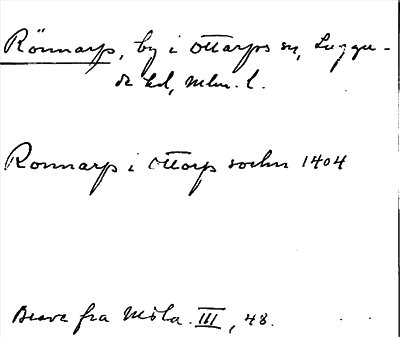 Rönnarp, by i Ottarps sn, Luggu-
de hd, Mlm. l.
Ronnarp i Ottorp sochn 1404
Breve fra Msla. III, 48.